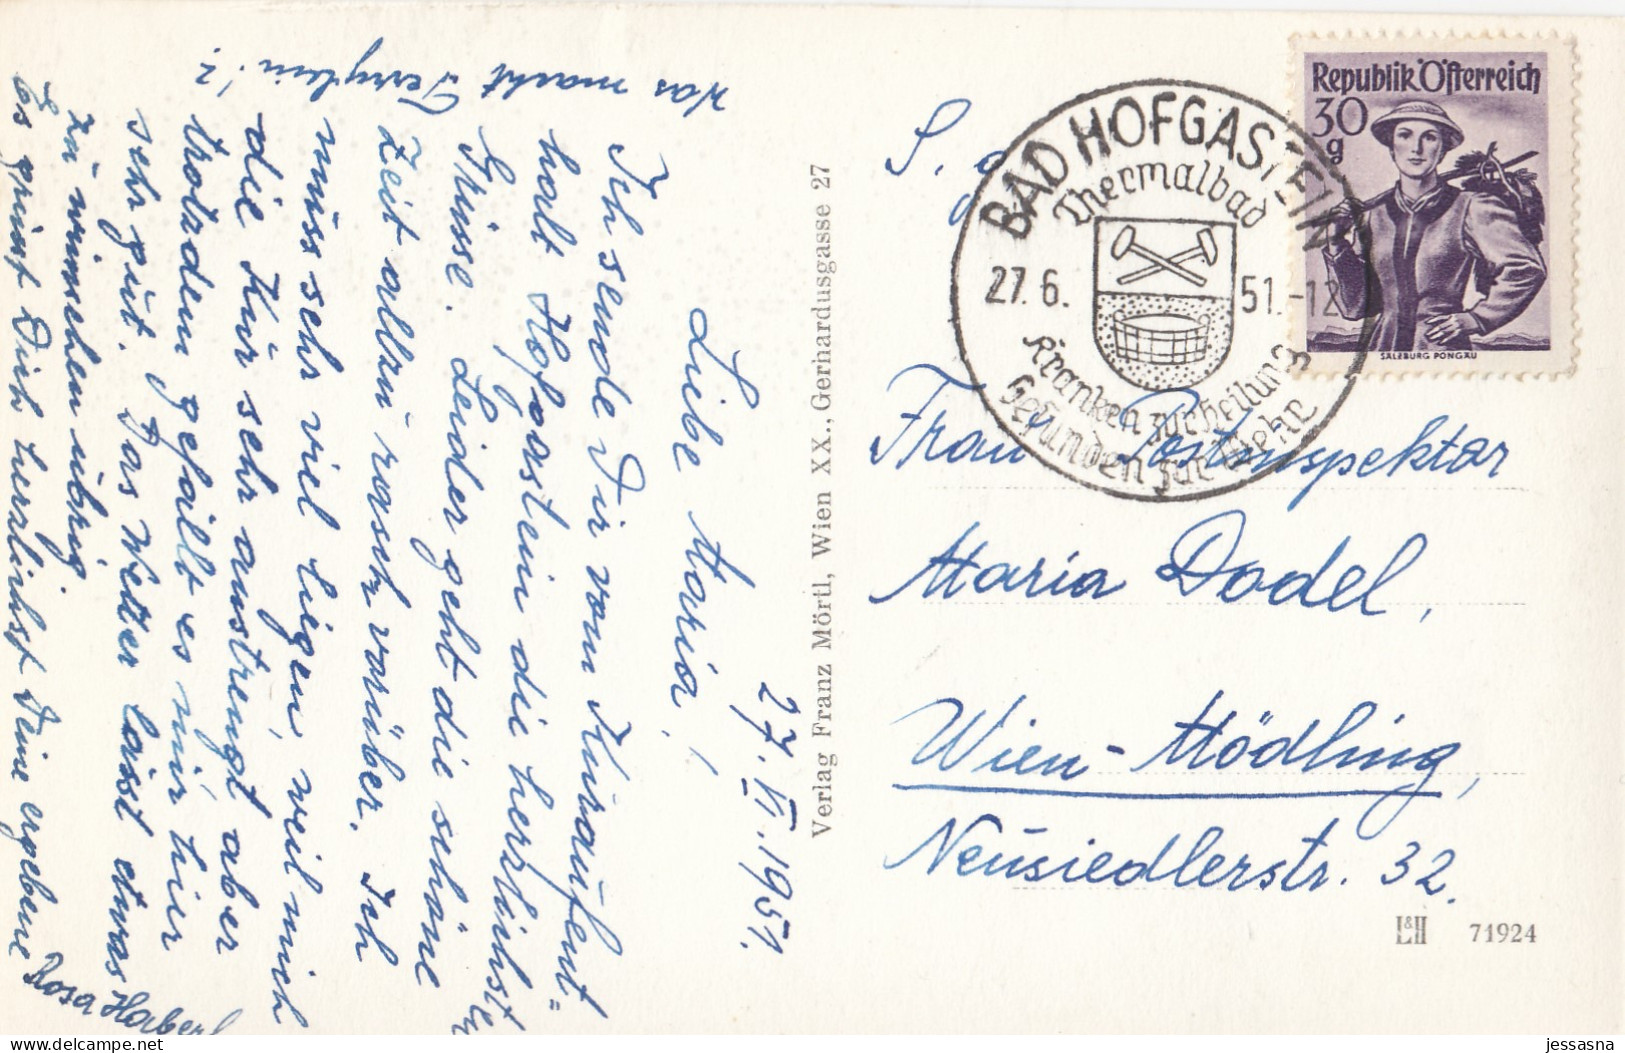 27. VI. 1951.
Liebe Maria!
Ich sende Dir vom Kuraufent=
halt Hofgastein die herzlichsten
Grüsse. Leider geht die schöne
Zeit allzu rasch vorüber. Ich
muss sehr viel liegen, weil mich
die Kur sehr anstrengt aber
trotzdem gefällt es mir hier
sehr gut. Das Wetter lässt etwas
zu wünschen übrig
Es grüsst Dich herzlichst Deine ergebene
Rosa
Was macht
Verlag Franz Mörtl, Wien XX., Gerhardusgasse 27
S. g.
BAD HOFGASTEIN
Thermalbad
27.6. 51.-12
Kranken zur Heilung
Gesunden zur Wehr
Republik Österreich
30
g
SALZBURG PONGAU
Frau Postinspektor
Maria Dodel,
Wien-Mödling,
Neusiedlerstr. 32.
L&H 71924
jessasna